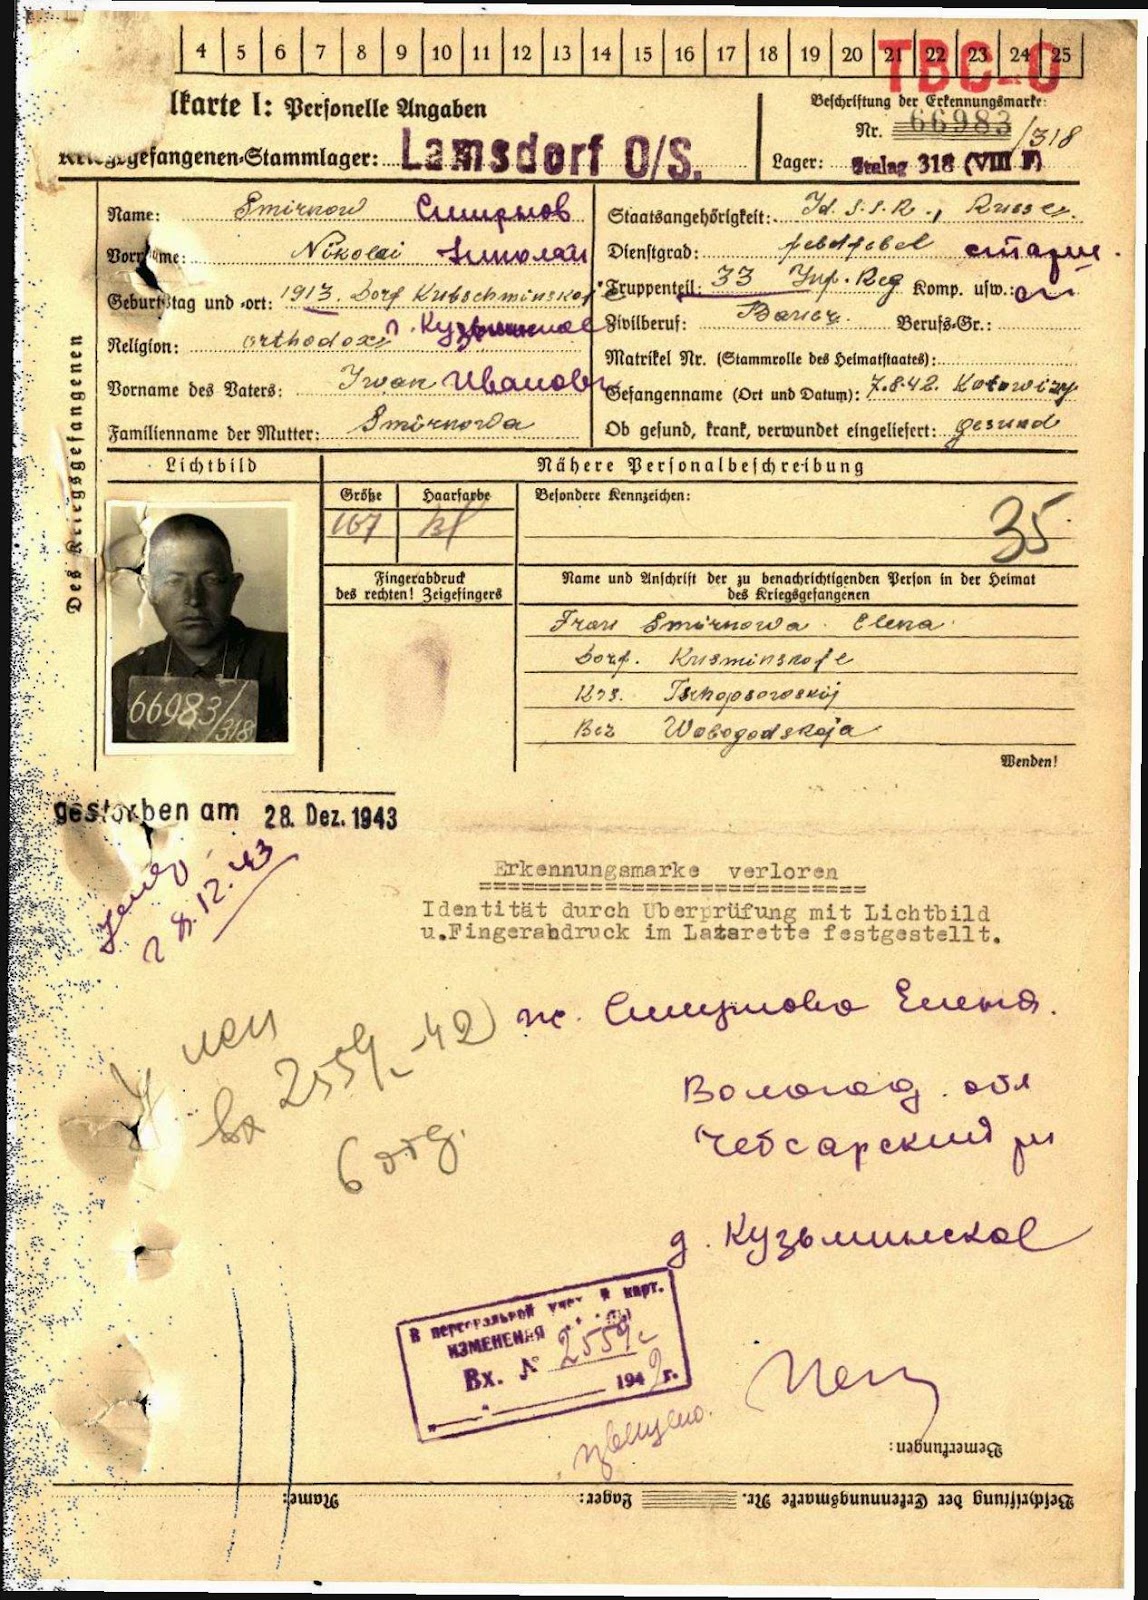 4 5 6 7 8 9 10 11 12 13 14 15 16 17 18 19 20 21 22 23 24 25
TBC-0
lkarte I: Personelle Angaben
Beschriftung der Erkennungsmarke:
Nr. 66983/318
Kriegsgefangenen-Stammlager: Lamsdorf O/S.
Lager: Stalag 318 (VIII F)
Des Kriegsgefangenen
Name: Smirnow Смирнов
Vorname: Nikolai Николай
Geburtstag und -ort: 1913. Dorf
д. Кузьминское
Religion: orthodox
Vorname des Vaters: Iwan Иванович
Familienname der Mutter: Smirnowa
Staatsangehörigkeit: S.S.R., Russe.
Dienstgrad: febdfebel старш.
Truppenteil: 33 Inf. Reg Komp. usw.:
Zivilberuf: Bauer. Berufs-Gr.:
Matrikel Nr. (Stammrolle des Heimatstaates):
Gefangenname (Ort und Datum): 7.8.42.
Ob gesund, krank, verwundet eingeliefert: gesund
Lichtbild
Nähere Personalbeschreibung
Größe Haarfarbe
167 bl
Besondere Kennzeichen:
35
Fingerabdruck
des rechten! Zeigefingers
Name und Anschrift der zu benachrichtigenden Person in der Heimat
des Kriegsgefangenen
Frau Smirnowa Elena
Dorf. Kusminskoje
Bez Wologodskaja
Wenden!
66983/318
gestorben am 28. Dez. 1943
28.12.43
Erkennungsmarke verloren
Identität durch Überprüfung mit Lichtbild
u.Fingerabdruck im Lazarette festgestellt.
ж. Смирнова Елена.
Вологод. обл
Чебсарский рн
д. Кузьминское
вх 2559с-42
6 отд.
В персональной учет. и карт.
ИЗМЕНЕНИЯ
Вх. № 2559с
1942 г.
Bemerkungen:
Beschriftung der Erkennungsmarke Nr. Lager: Name: